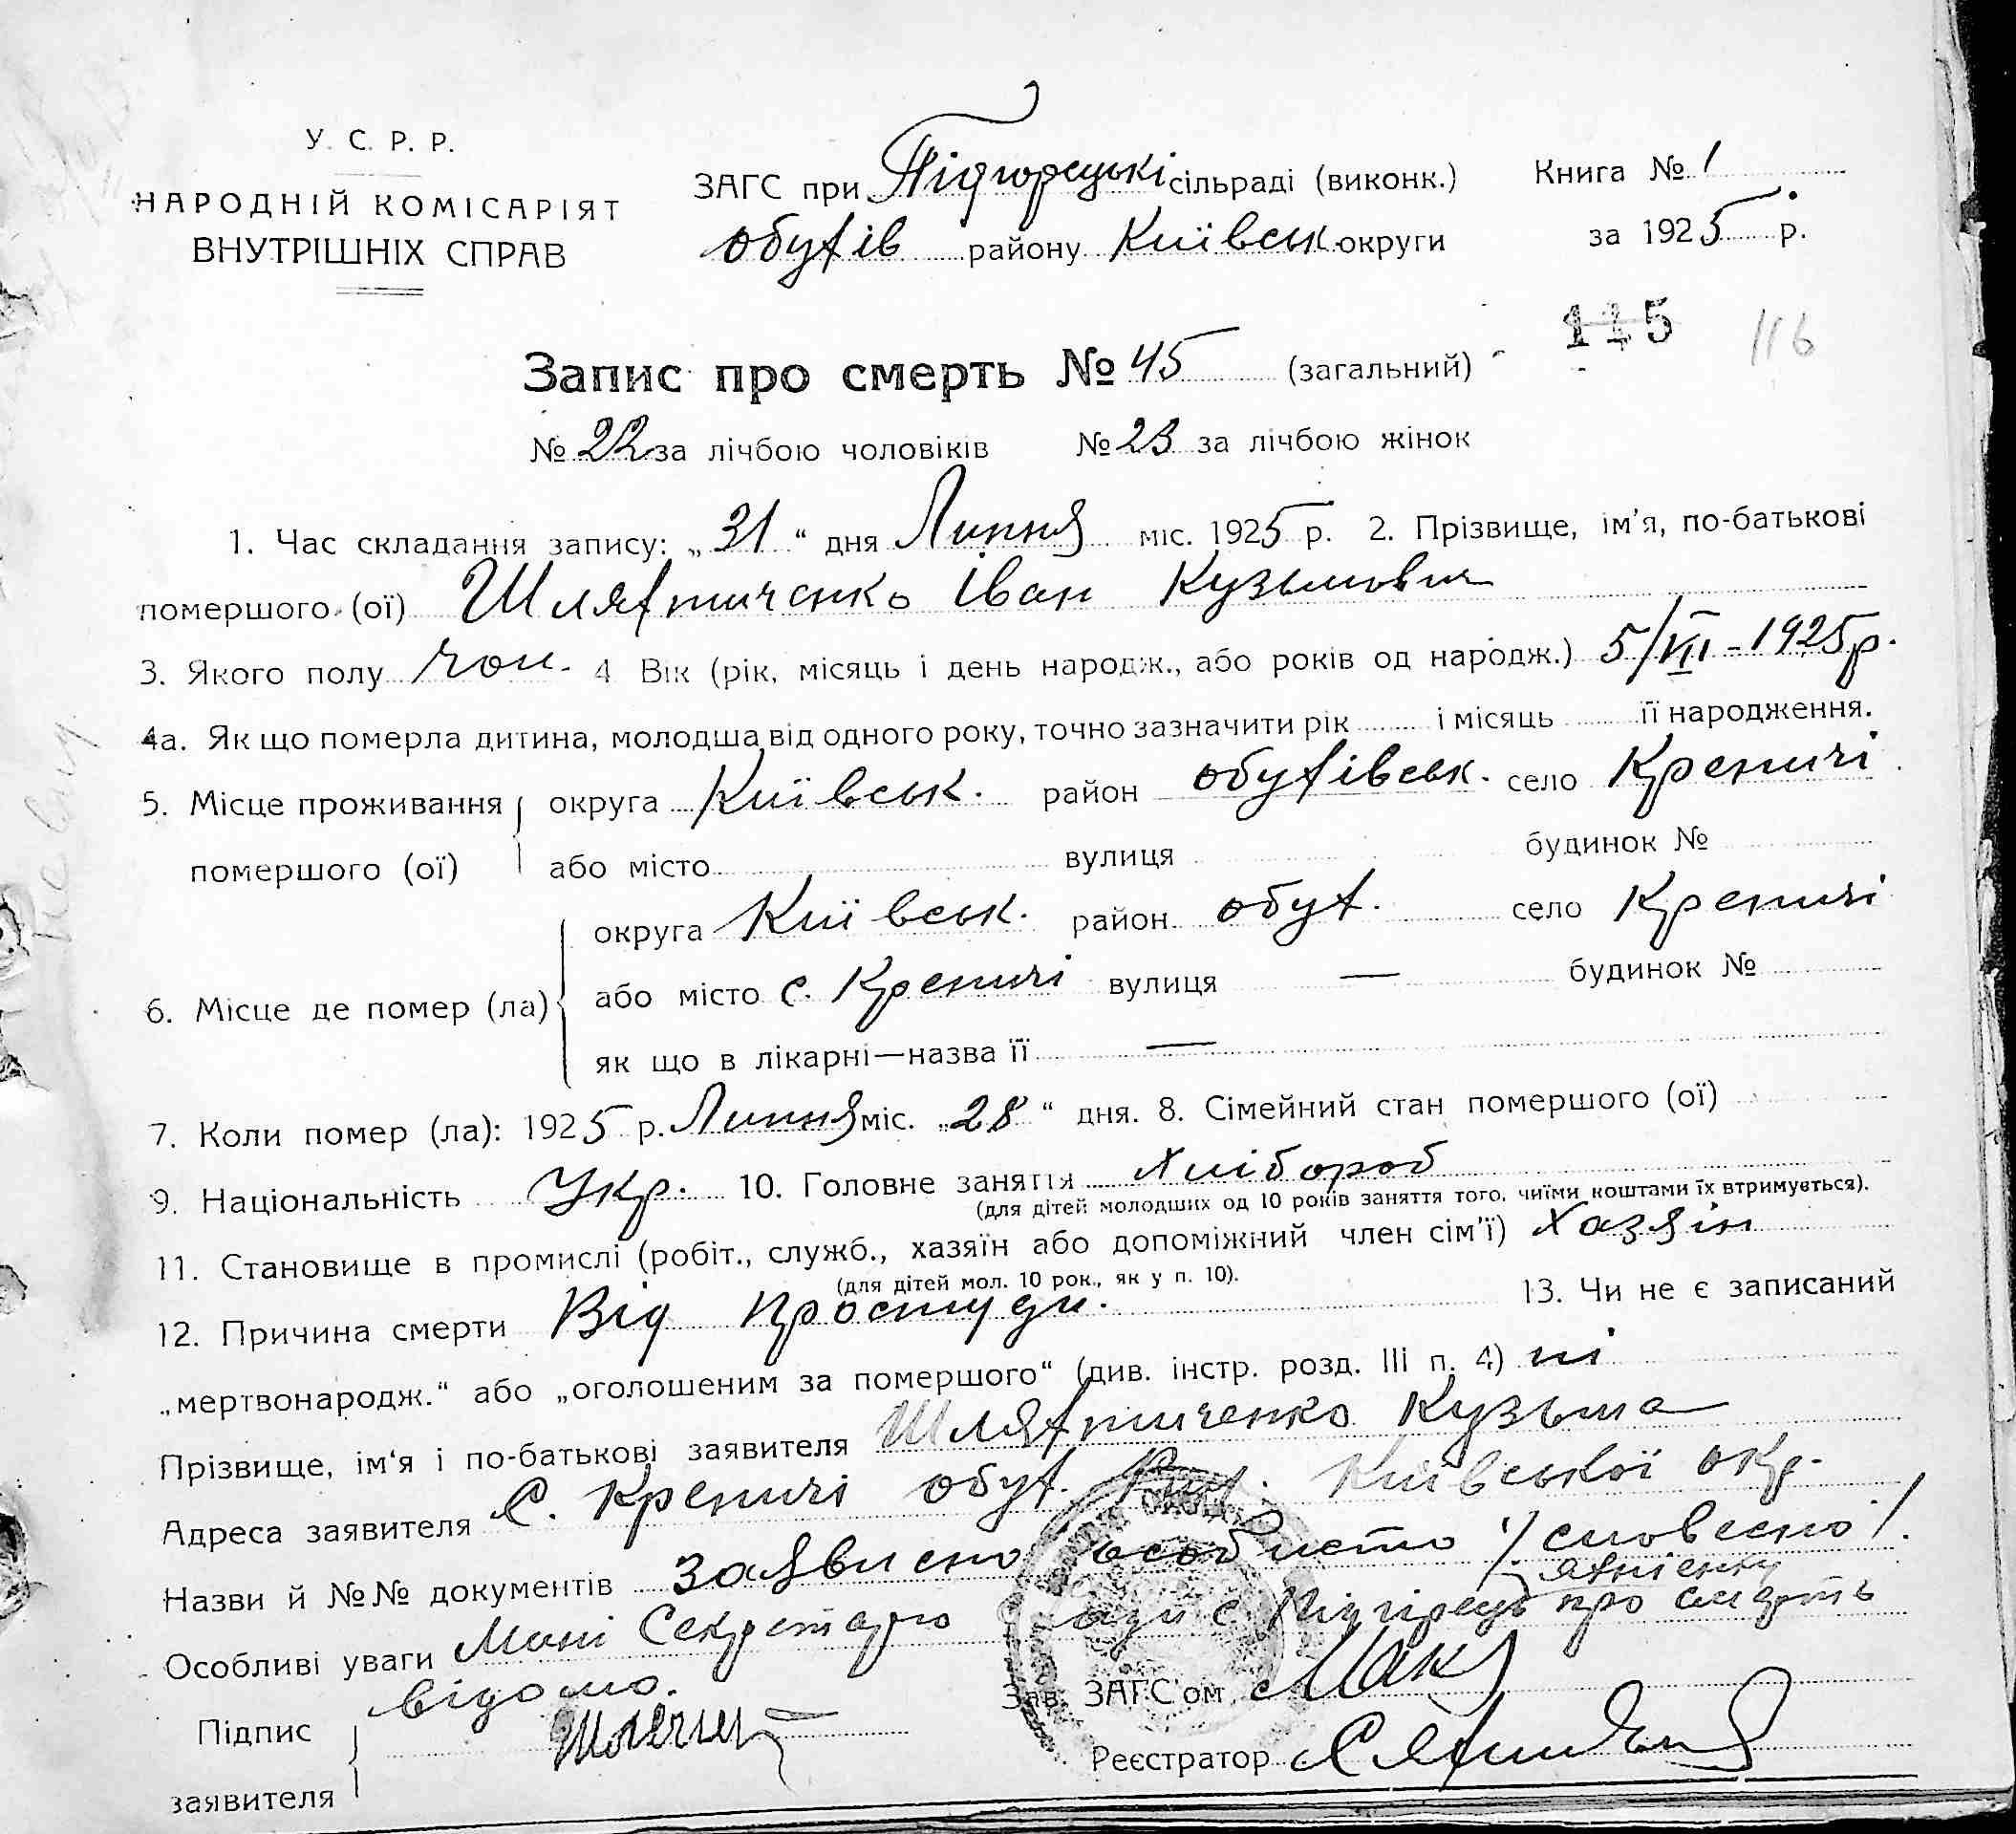 У. С. Р. Р.
НАРОДНІЙ КОМІСАРІЯТ
ВНУТРІШНІХ СПРАВ
ЗАГС при Підгорецькі сільраді (виконк.)
обухів району Київськ округи
Книга № 1
за 1925 р.
115 116
Запис про смерть № 45 (загальний)
№ 22 за лічбою чоловіків № 23 за лічбою жінок
1. Час складання запису: „31“ дня Липня міс. 1925 р. 2. Прізвище, ім'я, по-батькові
помершого (ої) Шляхтиченко Іван Кузьмович
3. Якого полу чол. 4 Вік (рік, місяць і день народж., або років од народж.) 5/VII-1925р.
4а. Як що померла дитина, молодша від одного року, точно зазначити рік і місяць її народження.
5. Місце проживання округа Київськ. район обухівськ. село Креничі
помершого (ої) або місто вулиця будинок №
округа Київськ. район обух. село Креничі
6. Місце де помер (ла) або місто с. Креничі вулиця — будинок №
як що в лікарні—назва її —
7. Коли помер (ла): 1925 р. Липня міс. „28“ дня. 8. Сімейний стан помершого (ої)
9. Національність Укр. 10. Головне заняття хлібороб
(для дітей молодших од 10 років заняття того, чиїми коштами їх втримується).
11. Становище в промислі (робіт., служб., хазяїн або допоміжний член сім'ї) хазяін
(для дітей мол. 10 рок., як у п. 10).
12. Причина смерти Від простуди. 13. Чи не є записаний
„мертвонародж.“ або „оголошеним за помершого“ (див. інстр. розд. III п. 4) ні
Прізвище, ім'я і по-батькові заявителя Шляхтиченко Кузьма
Адреса заявителя с. Креничі обух. Київської окр.
Назви й №№ документів Заявлено особисто /словесно/.
Особливі уваги Мині Секретарю с. Підгірець про смерть
відомо.
Підпис
заявителя
Зав. ЗАГС'ом
Реєстратор